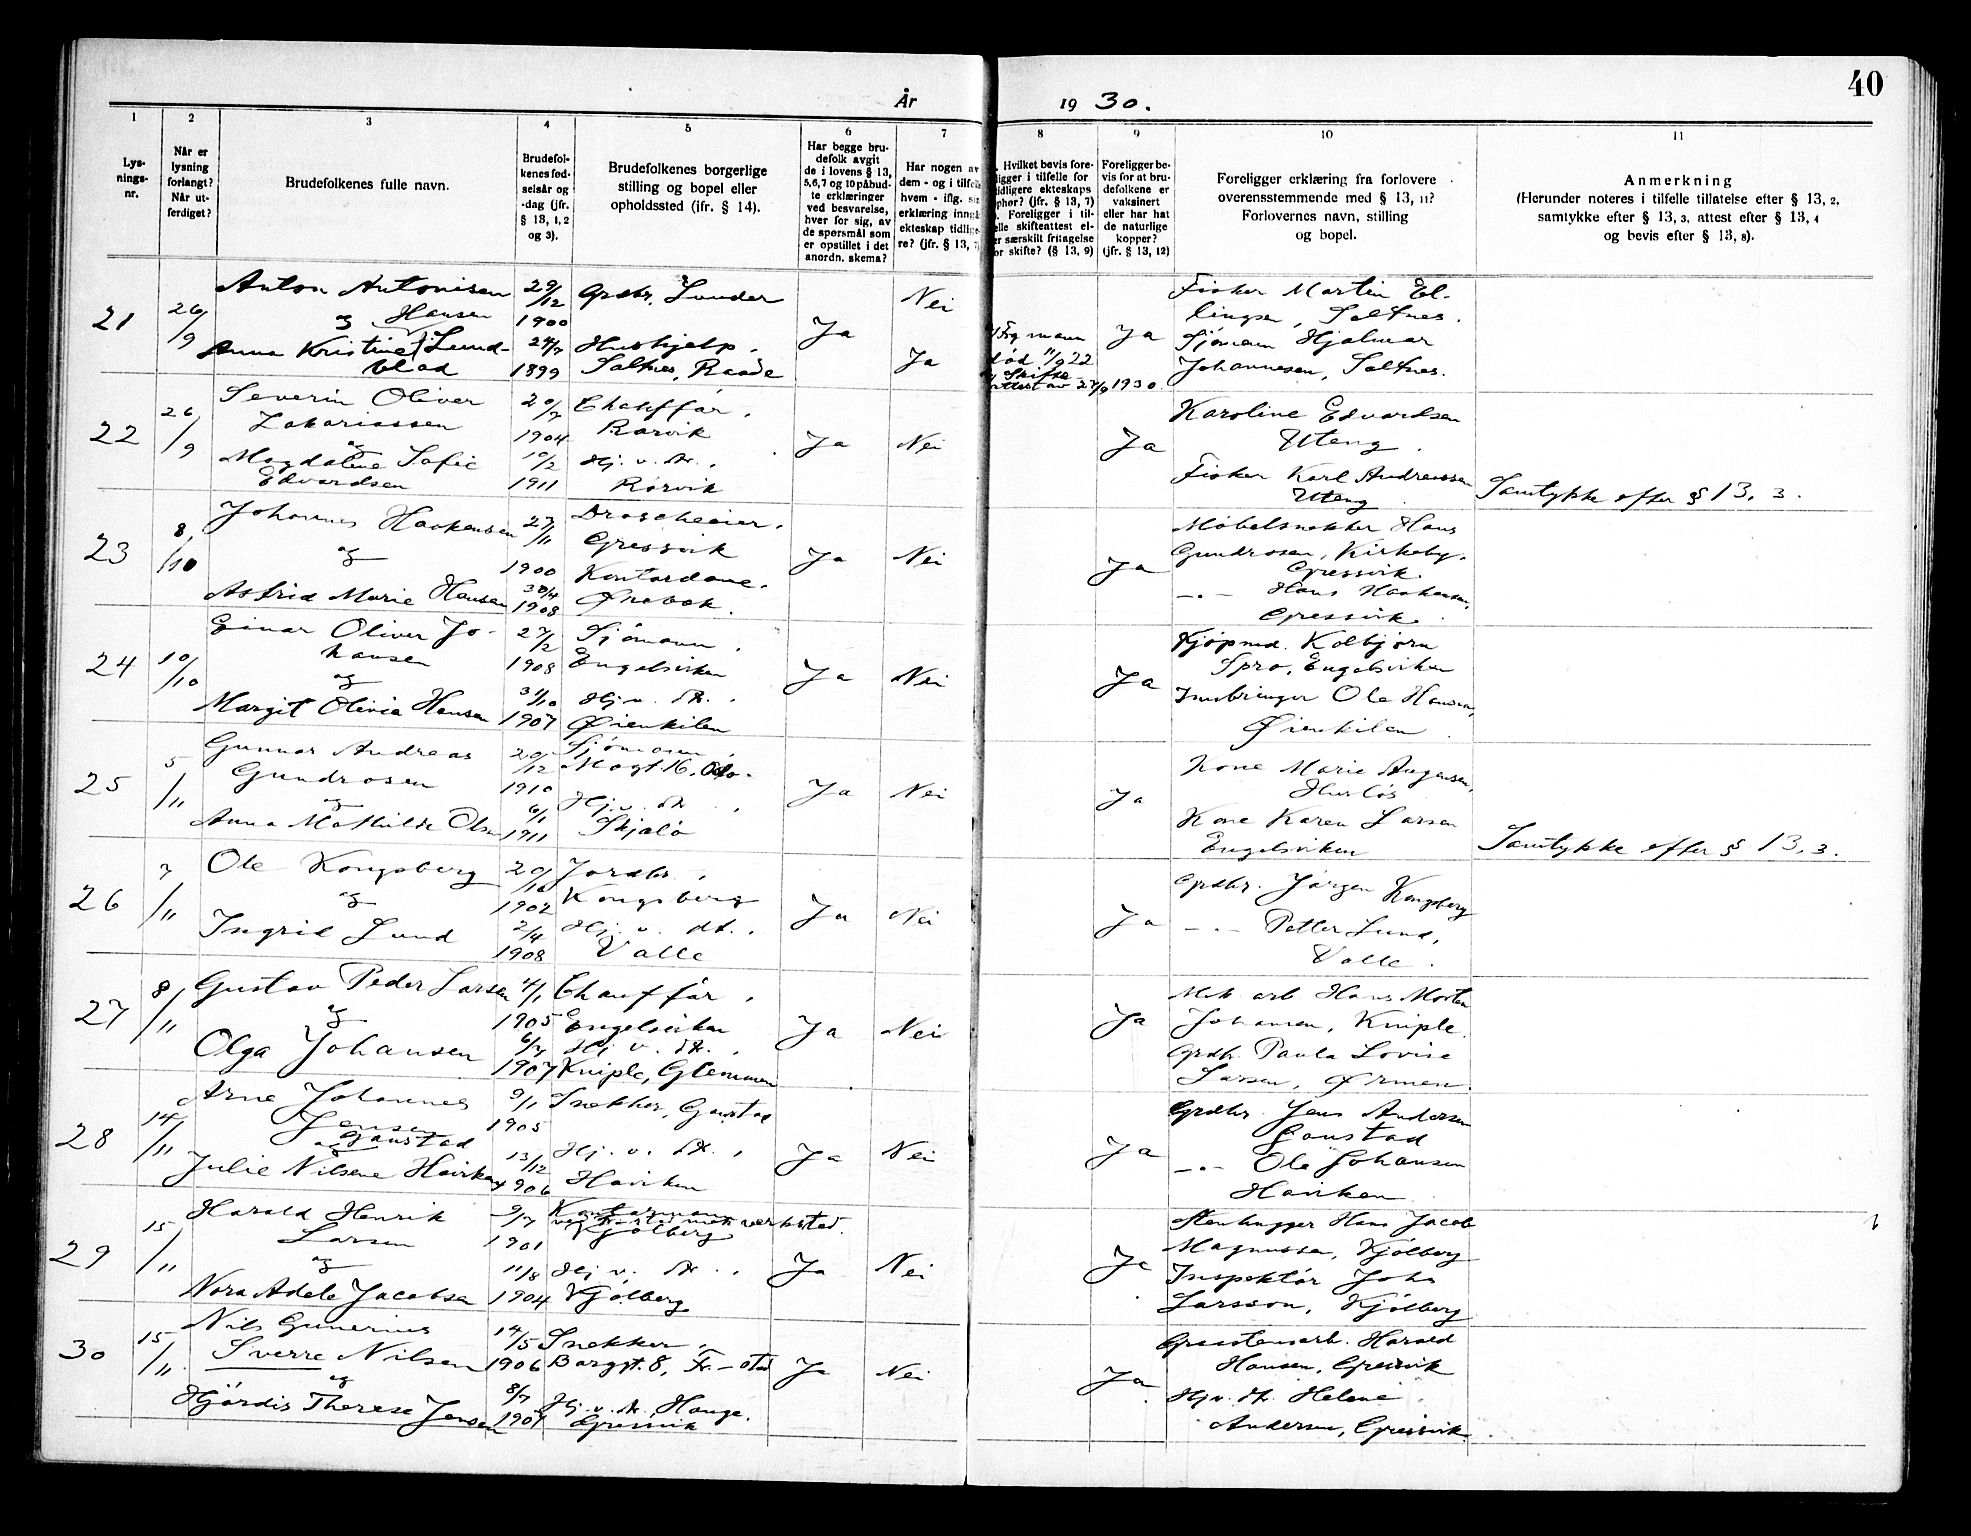 40
År 1930.
1 2 3 4 5 6 7 8 9 10 11
Lys-
nings-
nr.
Når er
lysning
forlangt?
Når ut-
ferdiget?
Brudefolkenes fulle navn.
Brudefol-
kenes fød-
selsår og
-dag (jfr.
§ 13, 1, 2
og 3).
Brudefolkenes borgerlige
stilling og bopel eller
opholdssted (ifr. § 14).
Har begge bru-
defolk avgit
de i lovens § 13,
5,6,7 og 10 påbud-
te erklæringer
ved besvarelse,
hver for sig, av
de spørsmål som
er opstillet i det
anordn. skema?
Har nogen av
dem - og i tilfelle
hvem - iflg. sin
erklæring inngått
ekteskap tidlige-
re? (jfr. § 13, 7)
Hvilket bevis fore-
ligger i tilfelle for
tidligere ekteskaps
ophør? (jfr. § 13, 7)
Foreligger i til-
felle skifteattest el-
ler særskilt fritagelse
for skifte? (§ 13, 9)
Foreligger be-
vis for at bru-
defolkene er
vaksinert
eller har hat
de naturlige
kopper?
(jfr. § 13, 12)
Foreligger erklæring fra forlovere
overensstemmende med § 13, 11?
Forlovernes navn, stilling
og bopel.
Anmerkning
(Herunder noteres i tilfelle tillatelse efter § 13, 2,
samtykke efter § 13, 3, attest efter § 13, 4
og bevis efter § 13, 8).
21 26/9
Anton Antonisen
Hansen
og
Anna Kristine Lund-
blad
29/12
1900
24/7
1899
Grdbr. Lunder
Hushjelp.
Saltnes, Raade
Ja
Nei
Ja
Frg mann
død 11/9 22
Skifte
attest av 27/9 1930.
Ja
Fisker Martin El-
lingsen, Saltnes.
Sjömann Hjalmar
Johannesen, Saltnes.
22 26/9
Severin Oliver
Zakariassen
og
Magdalene Sofie
Edvardsen
20/7
1904
10/2
1911
Chafför.
Rørvik
Hj. v. dt.,
Rørvik
Ja Nei Ja
Karoline Edvardsen
Uteng
Fisker Karl Andreassen
Uteng
Samtykke efter § 13, 3.
23 8/10
Johannes Haakensen
og
Astrid Marie Hansen
27/11
1900
30/4
1908
Droscheeier.
Gressvik
Kontordame.
Ørebek.
Ja Nei Ja
Møbelsnekker Hans
Gundrosen, Kirkeby.
Gressvik.
—„— Hans Haakensen,
Gressvik.
24 10/10
Einar Oliver Jo-
hansen
og
Margit Olivia Hansen
27/2
1908
31/10
1907
Sjömann,
Engelsviken
Hj. v. dt.,
Øienkilen
Ja Nei Ja
Kjøpmd. Kolbjørn
Spro, Engelsviken
Innbringer Ole Hansen,
Øienkilen.
25 5/11
Gunnar Andreas
Gundrosen
og
Anna Mathilde Olsen
20/12
1910
6/1
1911
Sjömann,
Magt. 16, Oslo.
Hj. v. dt.,
Skjælø
Ja Nei Ja
Kone Marie Augensen,
Husløs
Kone Karen Larsen
Engelsviken
Samtykke efter § 13, 3.
26 7/11
Ole Kongsberg
og
Ingrid Lund
20/10
1902
2/4
1908
Jordbr.,
Kongsberg
Hj. v. dt.,
Valle
Ja Nei Ja
Grdbr. Jørgen Kongsberg
—„— Petter Lund,
Valle.
27 8/11
Gustav Peder Larsen
og
Olga Johansen
4/1
1905
6/7
1907
Chauffør,
Engelsviken
Hj. v. dt.,
Kniple, Glemmen
Ja Nei Ja
Mek arb Hans Morten
Johansen, Kniple.
Grdbr. Paula Lovise
Larsen, Ørmen.
28 14/11
Arne Johannes
Jensen
Gaustad
Julie Nilsene Haviken
9/1
1905
13/12
1906
Snekker, Gaustad
Hj. v. dt.,
Haviken
Ja Nei Ja
Grdbr. Jens Andersen
Gaustad
—„— Ole Johansen
Haviken
29 15/11
Harald Henrik
Larsen
og
Nora Adele Jacobsen
9/7
1901
11/8
1904
Kontormann
ved Fr.stad mek verksted.
Kjölberg
Hj. v. dt.,
Kjölberg
Ja Nei Ja
Stenhugger Hans Jacob
Magnussen, Kjölberg
Inspektör John
Larsson, Kjölberg
30 15/11
Nils Gunerius
Sverre Nilsen
og
Hjördis Therese Jensen
14/5
1906
8/7
1907
Snekker,
Borggt. 8, Fr.-stad
Hj. v. dt. Hauge.
Gressvik
Ja Nei Ja
Grusstensarb. Harald
Hansen, Gressvik
Hj v. dt. Helene
Andersen, Gressvik.